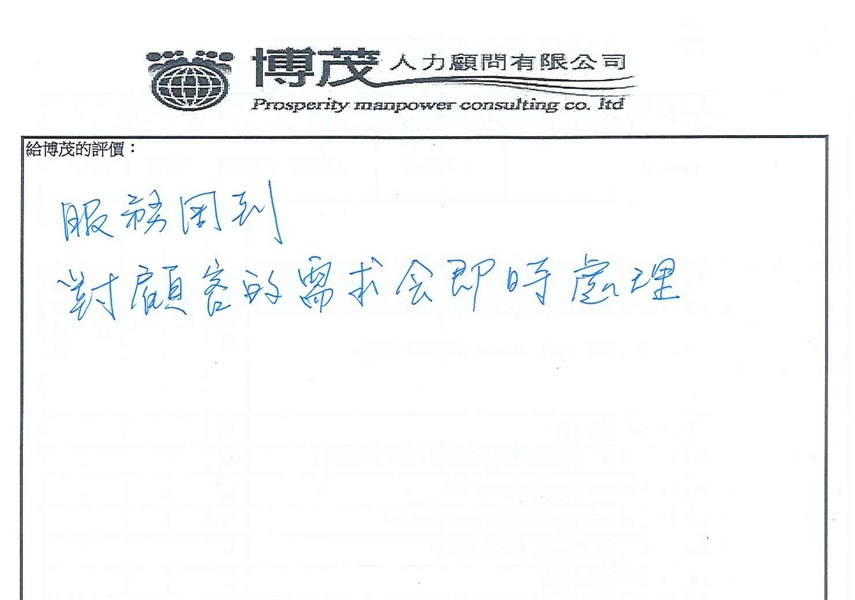 博茂人力顧問有限公司
Prosperity manpower consulting co. ltd
給博茂的評價：
服務周到
對顧客的需求会即時處理